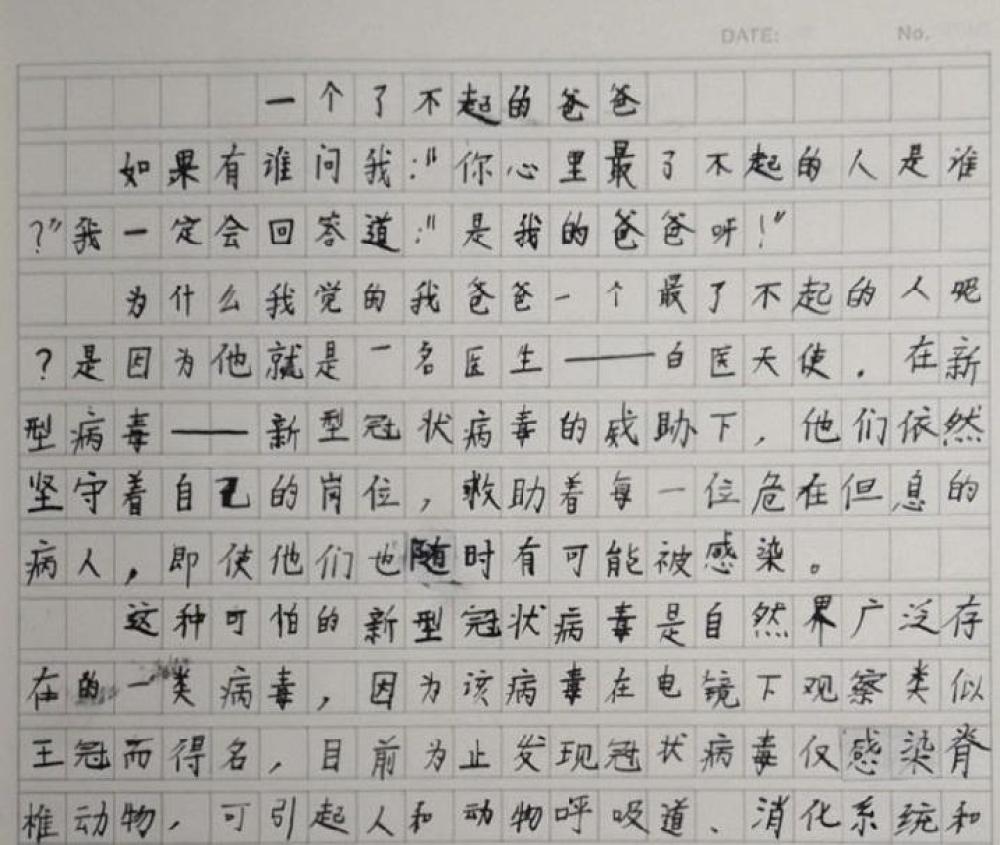 DATE: No.
一个了不起的爸爸
如果有谁问我:"你心里最了不起的人是谁
?"我一定会回答道:"是我的爸爸呀!"
为什么我觉的我爸爸一个最了不起的人呢
?是因为他就是一名医生——白医天使.在新
型病毒——新型冠状病毒的威助下,他们依然
坚守着自己的岗位,救助着每一位危在但息的
病人,即使他们也随时有可能被感染。
这种可怕的新型冠状病毒是自然界广泛存
在的一类病毒,因为该病毒在电镜下观察类似
王冠而得名,目前为止发现冠状病毒仅感染脊
椎动物,可引起人和动物呼吸道、消化系统和